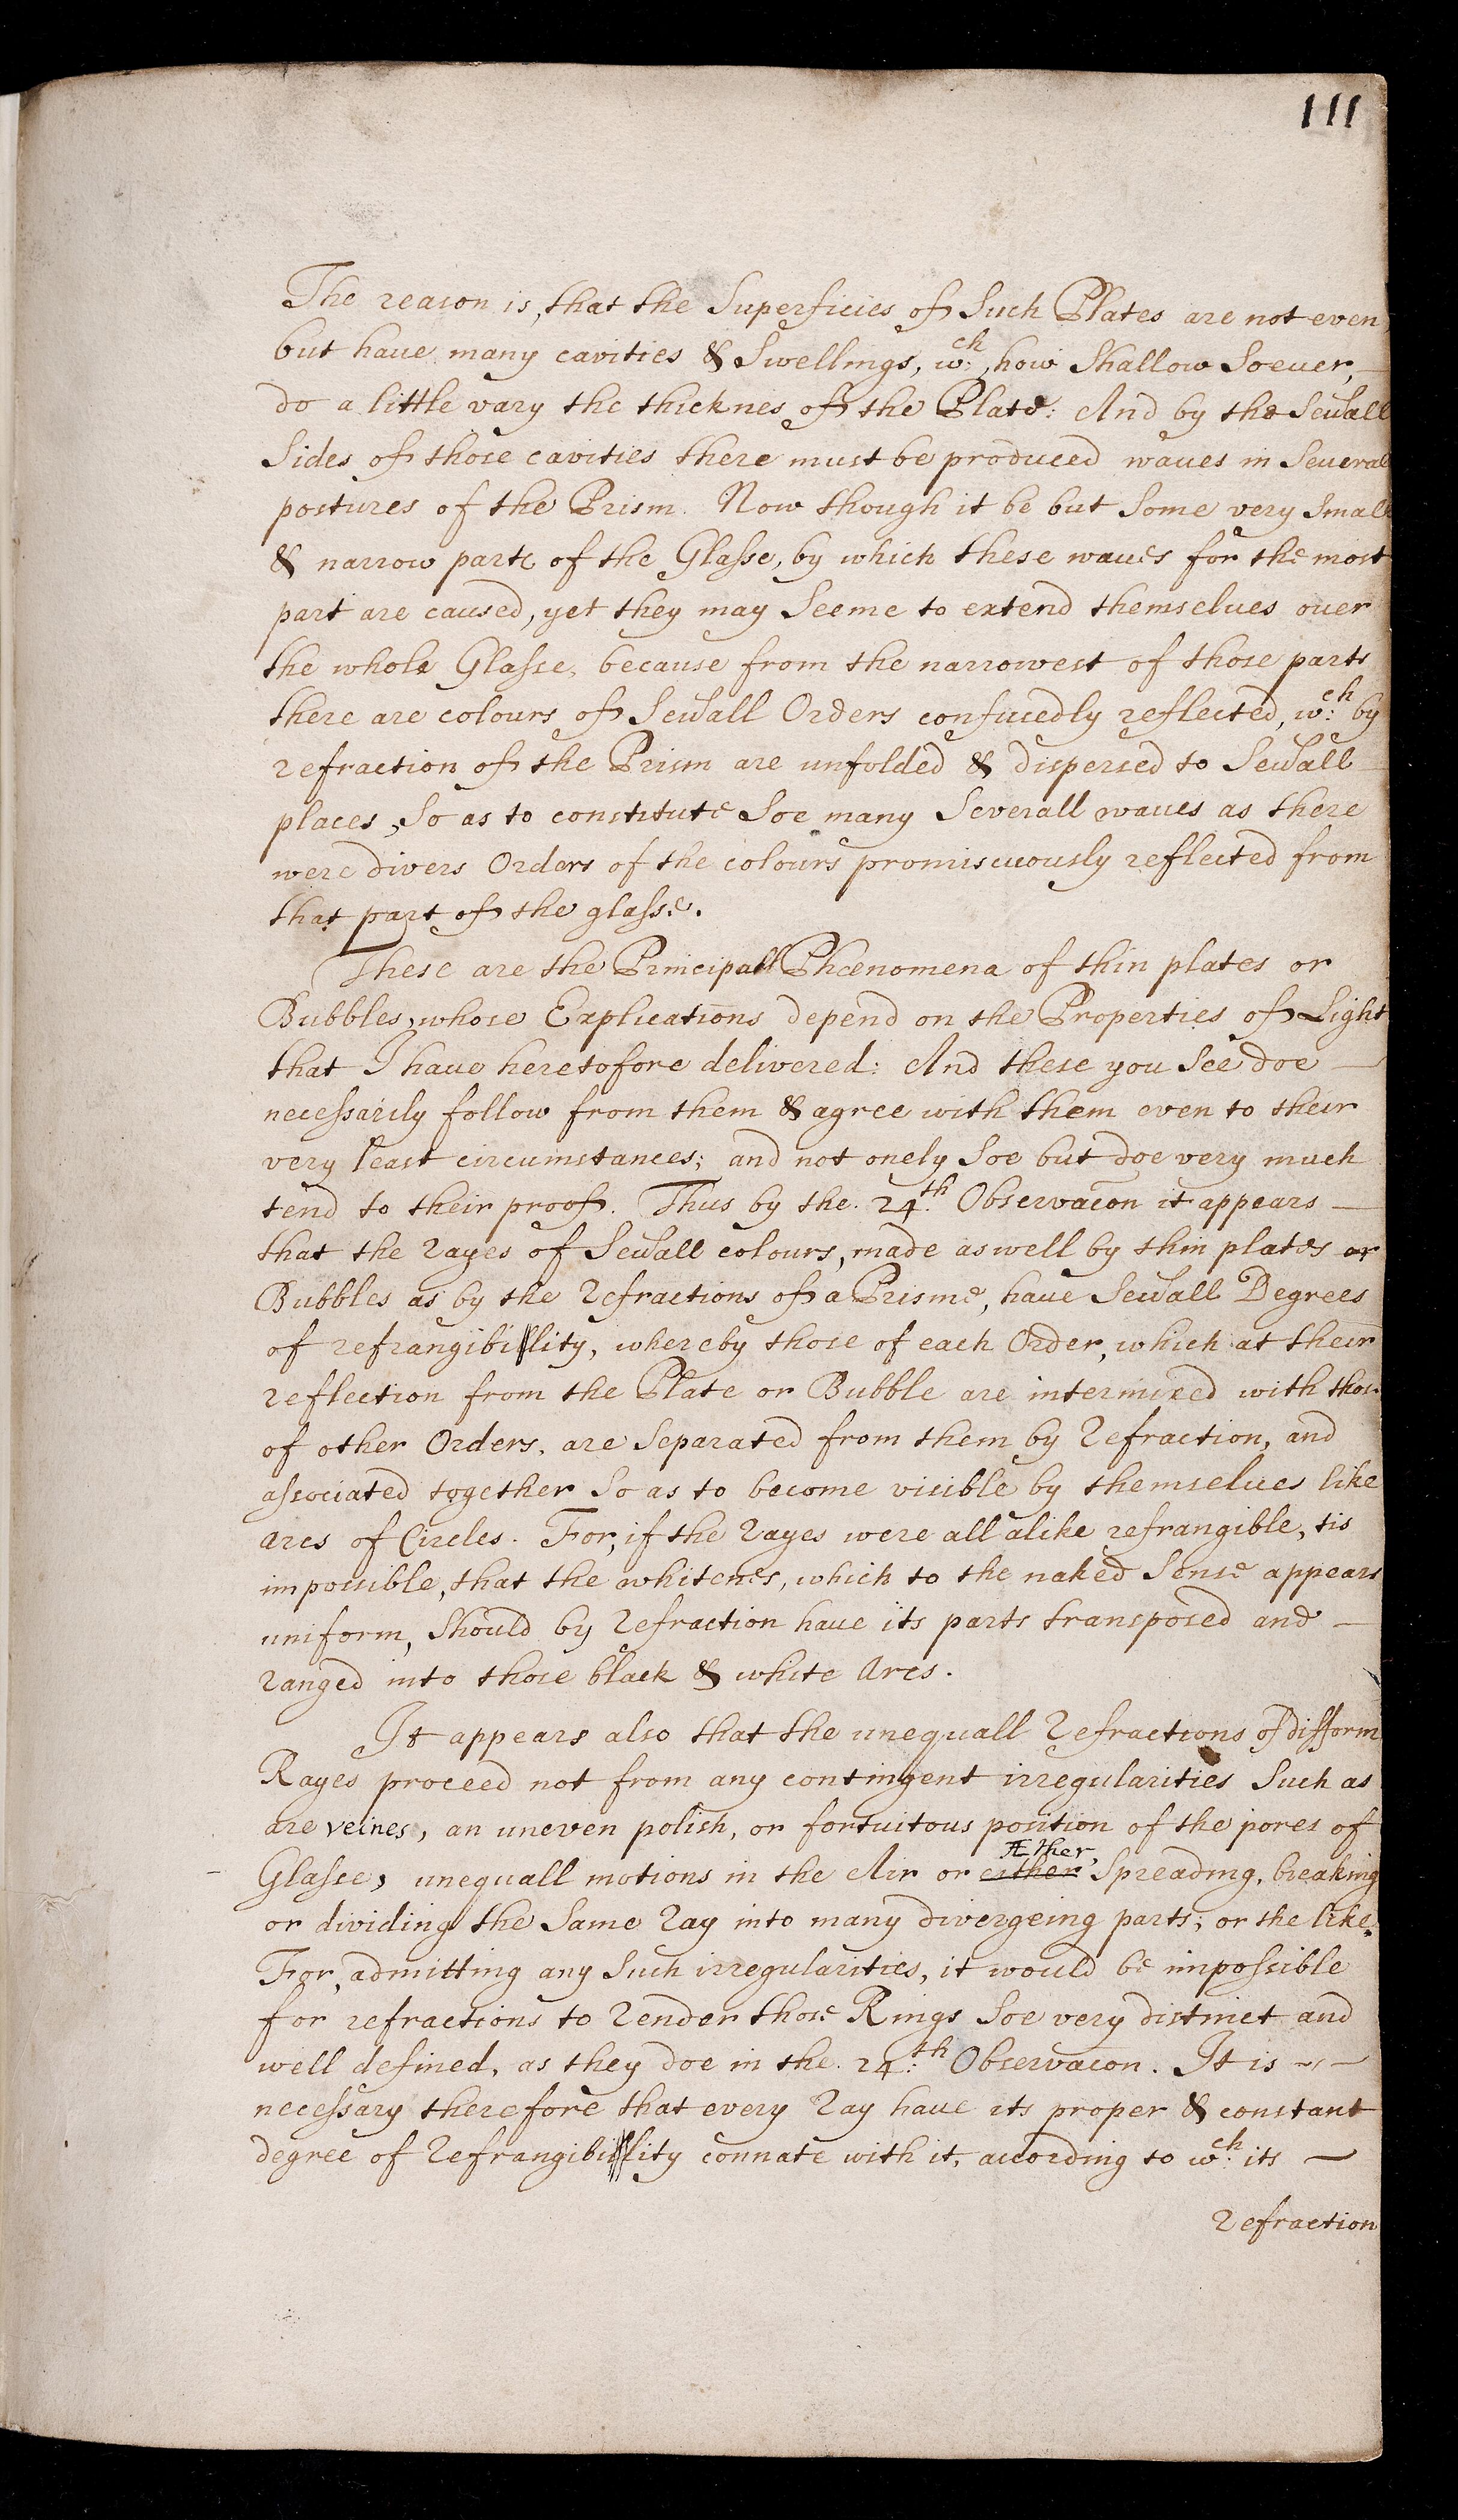 111
The reason is, that the Superficies of Such Plates are not even,
but haue many cavities & Swellings, w:ch, how Shallow Soeuer, —
do a little vary the thicknes of the Plate: And by the Seuall
Sides of those cavities there must be produced waues in Seueral
postures of the Prism. Now though it be but Some very Small
& narrow parts of the Glasse, by which these waues for the most
part are caused, yet they may Seeme to extend themselues ouer
the whole Glasse, because from the narrowest of those parts
there are colours of Seuall Orders confusedly reflected, w:ch by
refraction of the Prism are unfolded & dispersed to Seuall
places, So as to constitute Soe many Severall waues as there
were divers Orders of the colours promiscuously reflected from
that part of the glasse.
These are the Principall Phœnomena of thin plates or
Bubbles, whose Explications depend on the Properties of Light
that I haue heretofore delivered: And these you See doe —
necessarily follow from them & agree with them even to their
very least circumstances; and not onely Soe but doe very much
tend to their proof. Thus by the 24.th Observacon it appears —
that the rayes of Seuall colours, made aswell by thin plates or
Bubbles as by the refractions of a Prisme, haue Seuall Degrees
of refrangibillity, whereby those of each Order, which at their
reflection from the Plate or Bubble are intermixed with those
of other Orders, are Separated from them by refraction, and
associated together So as to become visible by themselues like
arcs of Circles. For, if the rayes were all alike refrangible, tis
impossible, that the whitenes, which to the naked Sense appears
uniform, Should by refraction haue its parts transposed and —
ranged into those black & white Arcs.
It appears also that the unequall refractions of difform
Rayes proceed not from any contingent irregularities Such as
are veines, an uneven polish, or fortuitous position of the pores of
Æther,
Glasse, unequall motions in the Air or either Spreading, breaking
or dividing the Same ray into many divergeing parts; or the like.
For, admitting any Such irregularities, it would be impossible
for refractions to render those Rings Soe very distinct and
well defined, as they doe in the 24:th Observacon. It is —
necessary therefore that every ray haue its proper & constant
degree of refrangibillity connate with it, according to w:ch its —
refraction